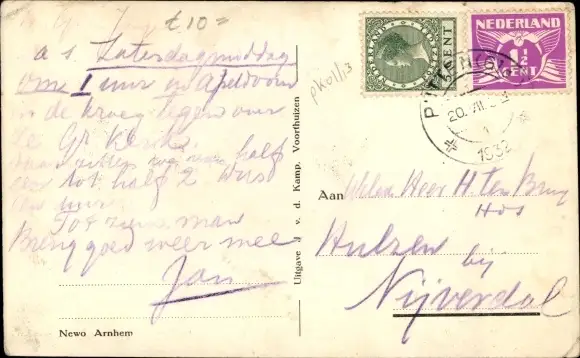 £10=
a s Zaterdagmiddag
om 1 uur in Apeldoorn
in de kroeg tegenover
de Gr. Kerk.
half
tot half 2 dus
een uur.
Tot ziens man
Breng goed weer mee
Jan
Newo Arnhem
Uitgave J. v. d. Kamp, Voorthuizen
pkoll/3
NEDERLAND
CENT
NEDERLAND
½
CENT
PUTTEN
20.VII
1932
Aan Weled. Heer H. ten Brug
Hos
Hulzen bij
Nijverdal